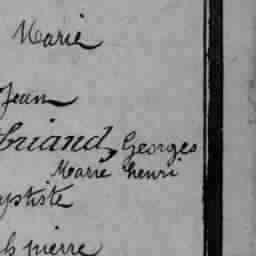 Marie
Jean
briand, Georges
Marie henri
aptiste
ph pierre